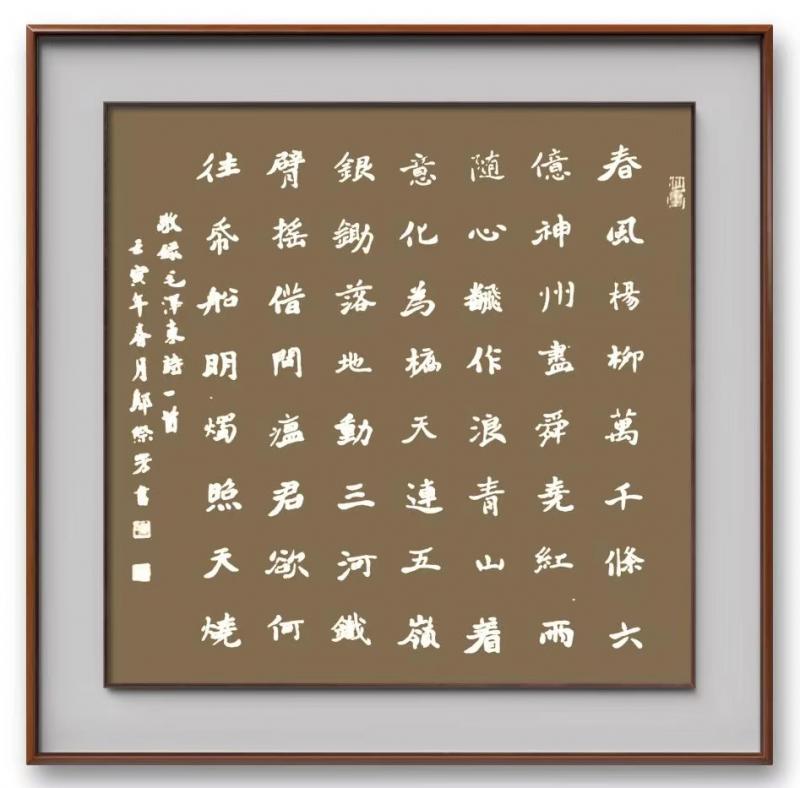 春風楊柳萬千條六
億神州盡舜堯紅雨
随心飜作浪青山着
意化為槗天連五嶺
銀鋤落地動三河鐵
臂摇借問瘟君欲何
往帋船明燭照天燒
敬録毛澤東詩一首
壬寅年春月書